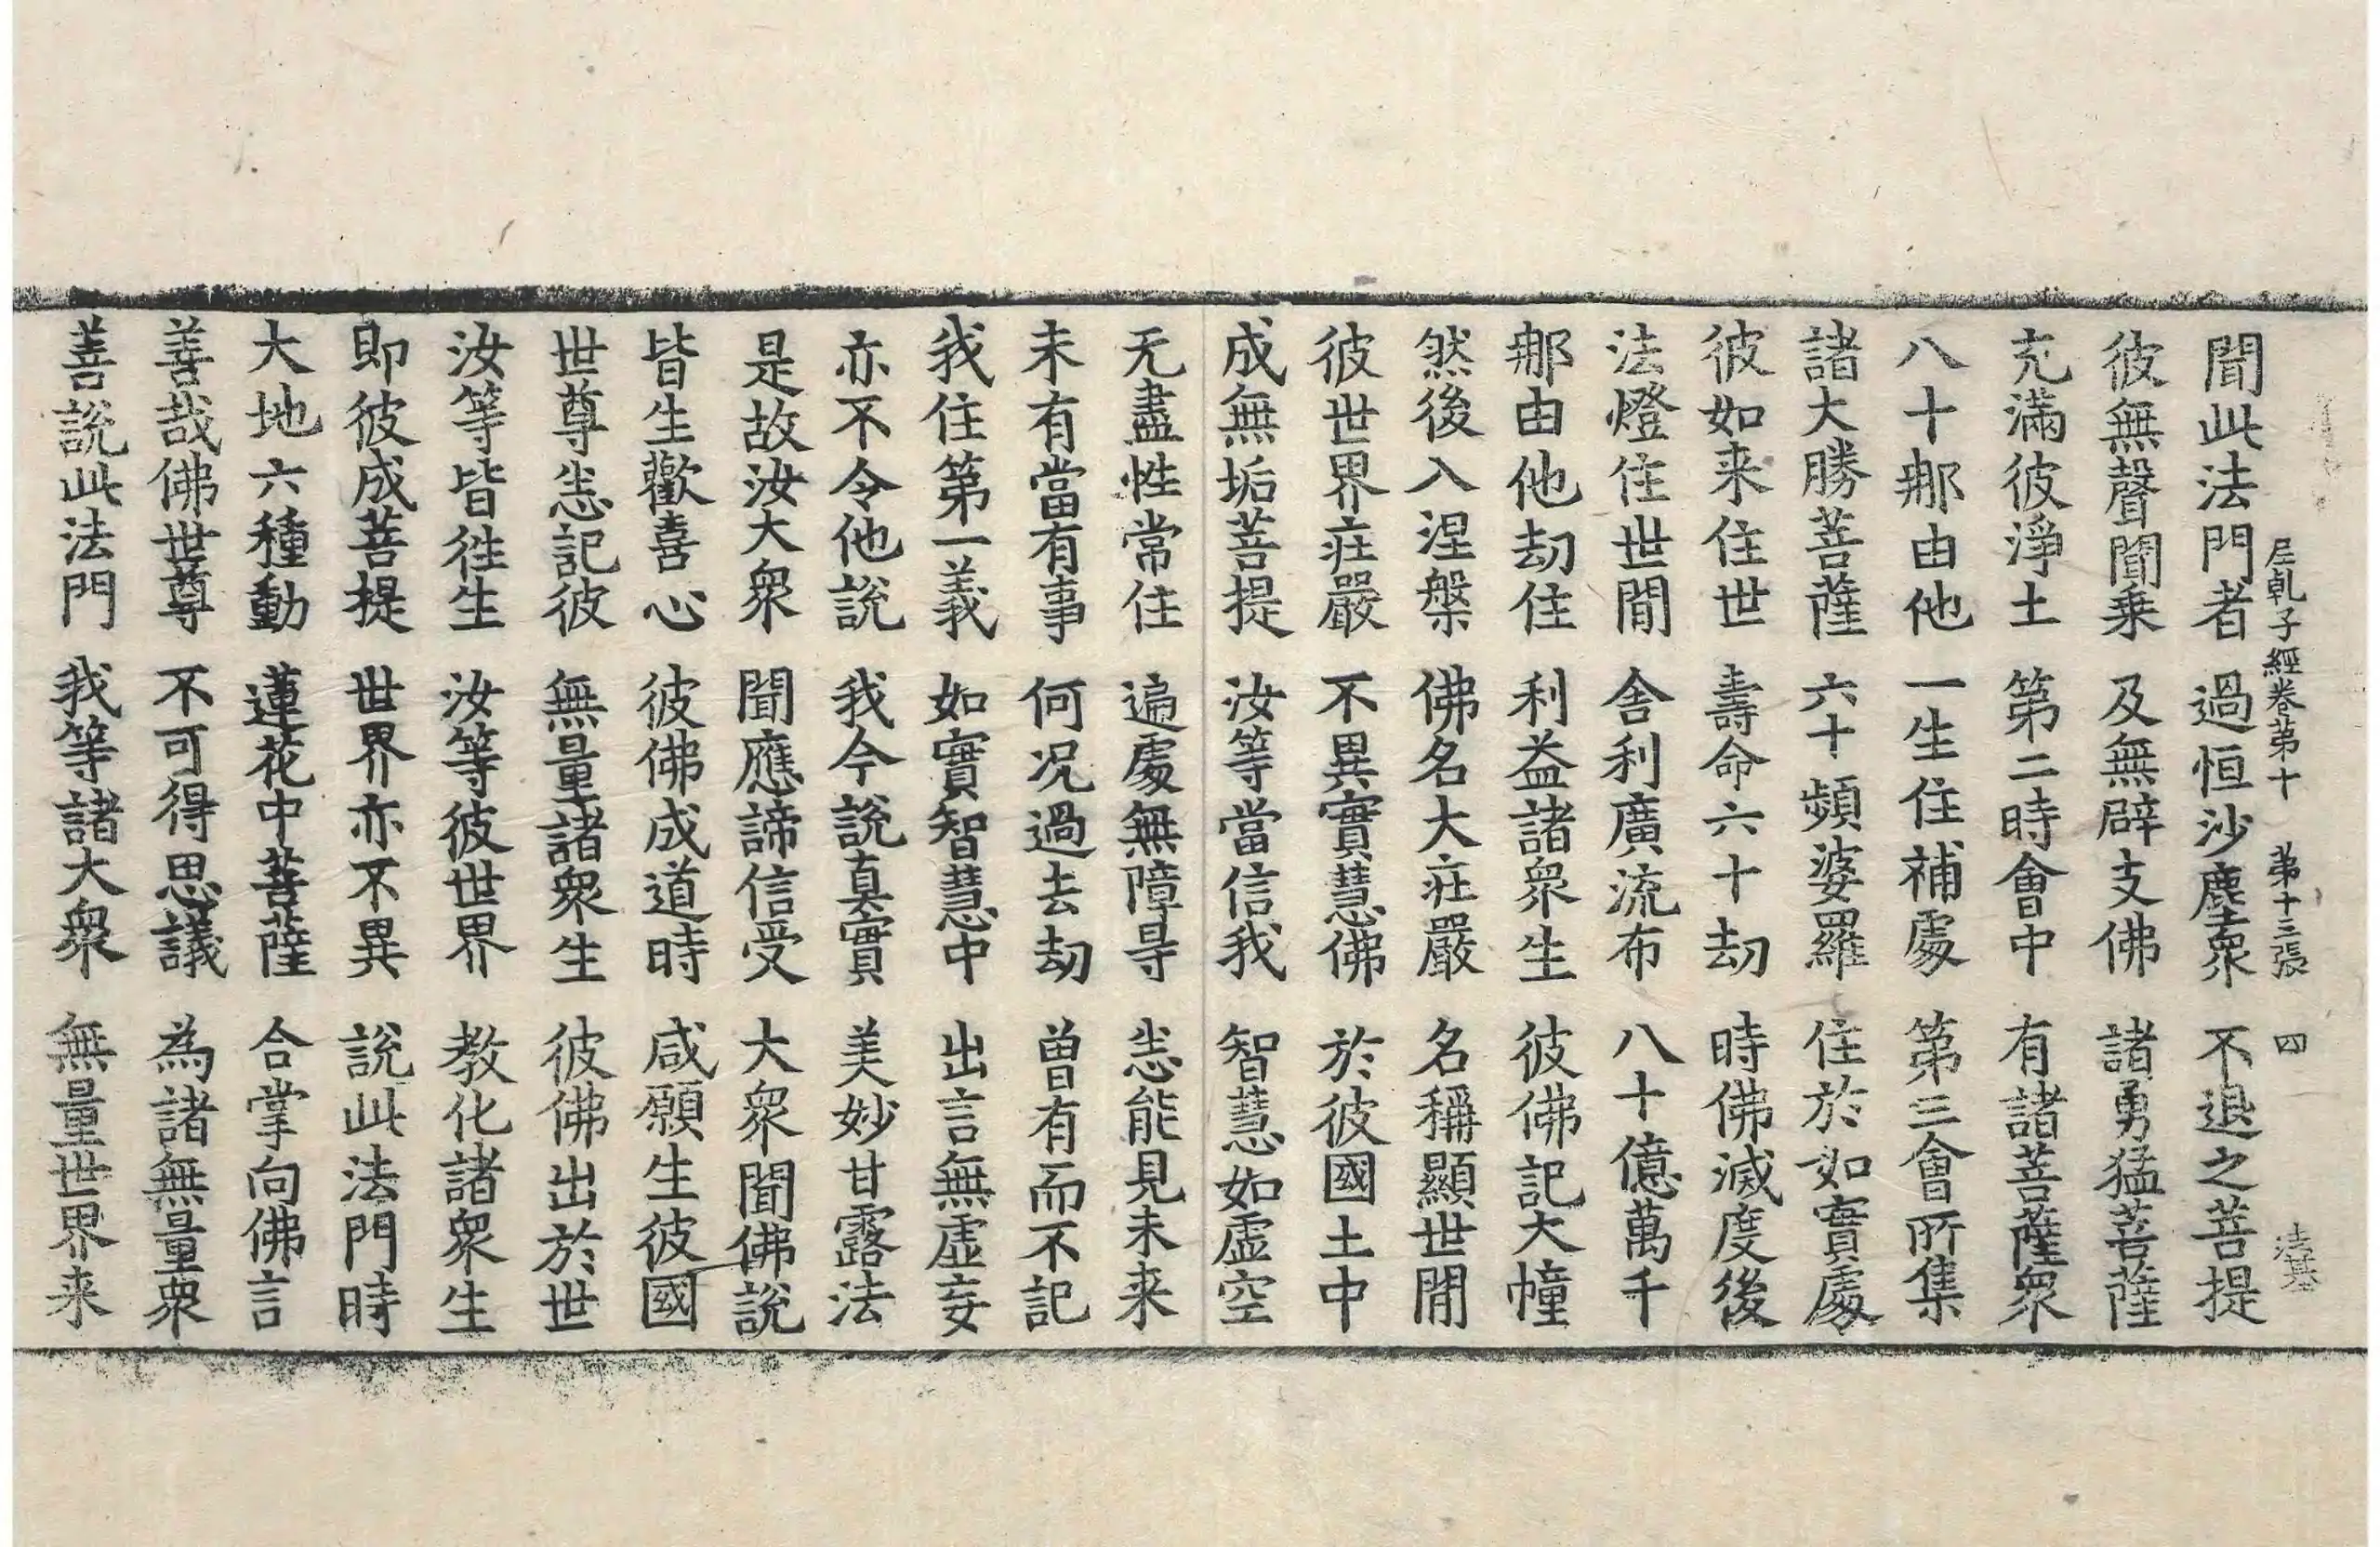 尼乹子經卷第十　第十三張　四
聞此法門者　過恒沙塵衆　不退之菩提
彼無聲聞乗　及無辟支佛　諸勇猛菩薩
充滿彼淨土　第二時會中　有諸菩薩衆
八十那由他　一生住補處　第三會所集
諸大勝菩薩　六十頻婆羅　住於如實處
彼如来住世　壽命六十劫　時佛滅度後
法燈住世間　舍利廣流布　八十億萬千
那由他劫住　利益諸衆生　彼佛記大幢
然後入涅槃　佛名大莊嚴　名稱顯世間
彼世界莊嚴　不異實慧佛　於彼國土中
成無垢菩提　汝等當信我　智慧如虛空
无盡性常住　遍處無障㝵　悉能見未来
未有當有事　何況過去劫　曽有而不記
我住第一義　如實智慧中　出言無虛妄
亦不令他説　我今説真實　美妙甘露法
是故汝大衆　聞應諦信受　大衆聞佛説
皆生歡喜心　彼佛成道時　咸願生彼國
世尊悉記彼　無量諸衆生　彼佛出於世
汝等皆往生　汝等彼世界　教化諸衆生
即彼成菩提　世界亦不異　説此法門時
大地六種動　蓮花中菩薩　合掌向佛言
善哉佛世尊　不可得思議　為諸無量衆
善説此法門　我等諸大衆　無量世界来